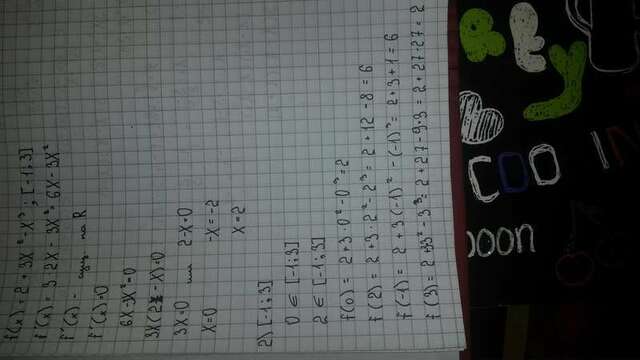 f(x) = 2 + 3x² - x³ ; [-1; 3]
f'(x) = 3·2x - 3x² = 6x - 3x²
f'(x) - сущ. на R
f'(x) = 0
6x - 3x² = 0
3x(2 - x) = 0
3x = 0 или 2 - x = 0
x = 0 -x = -2
x = 2
2) [-1; 3]
0 ∈ [-1; 3]
2 ∈ [-1; 3]
f(0) = 2 + 3·0² - 0³ = 2
f(2) = 2 + 3·2² - 2³ = 2 + 12 - 8 = 6
f(-1) = 2 + 3(-1)² - (-1)³ = 2 + 3 + 1 = 6
f(3) = 2 + 3·3² - 3³ = 2 + 27 - 9·3 = 2 + 27 - 27 = 2
COO
IN
oon